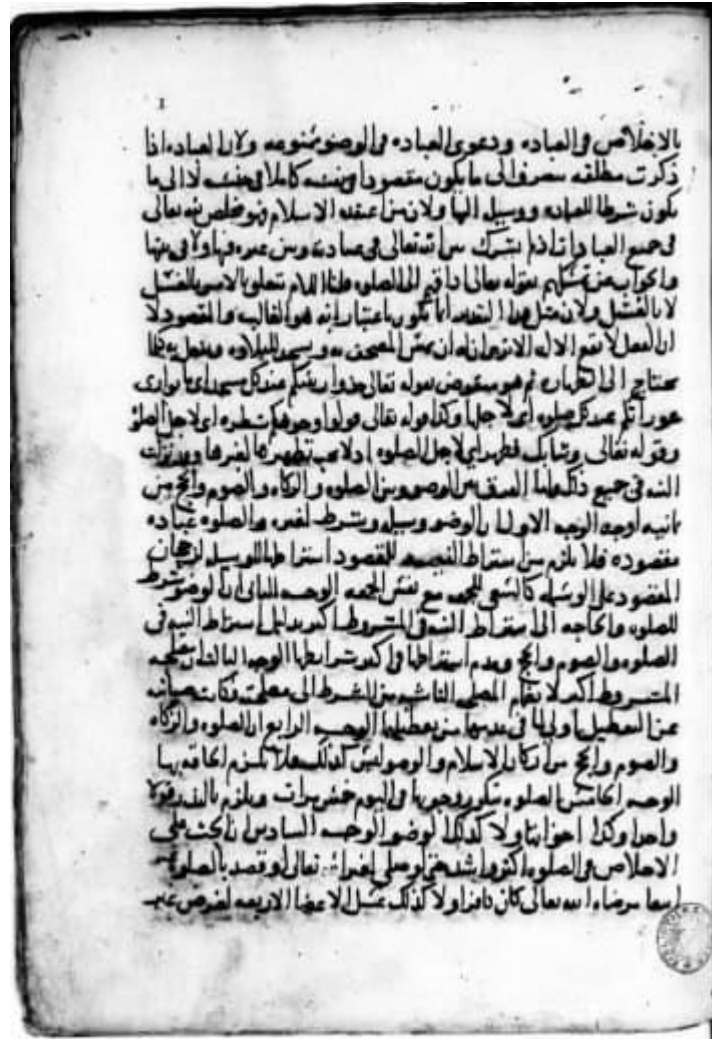 بالاخلاص في العباده ودعوى العباده في الوضو ممنوعه ولان العباده اذا
ذكرت مطلقه تنصرف الى ما يكون مقصودا في نفسه كاملا في نفسه لا الى ما
يكون شرطا للعباده ووسيله اليها ولان من اعتقد الاسلام فهو مخلص لله تعالى
في جميع العبادات اذ لم يشرك بين الله تعالى في عبادته وبين غيره
والجواب عن تمسكهم بقوله تعالى اذا قمتم الى الصلوه قلنا اللام تتعلق بالامر بالغسل
لا بالغسل ولان مثل هذا التقدير انما يكون باعتبار انه هو الغالب والمقصود لا
ان الفعل لا يقع الا له الا ترى ان له ان يمس المصحف به ويسجد للتلاوه ويفعل به كلما
يحتاج الى الطهاره ثم هو منقوض بقوله تعالى خذوا زينتكم عند كل مسجد اي ما يواري
عوراتكم عند كل صلوه اي لاجلها وكذا قوله تعالى فولوا وجوهكم شطره اي لاجل الصلوه
وقوله تعالى وثيابك فطهر اي لاجل الصلوه اذ لا يجب تطهيرها لغيرها
النيه في جميع ذلك الفرق بين الوضو وبين الصلوه والزكاه والصوم والحج من
ثمانيه اوجه الوجه الاول ان الوضو وسيله وشرط لغيره والصلوه عباده
مقصوده فلا يلزم من اشتراط النيه للمقصود اشتراطها للوسيله لرجحان
المقصود على الوسيله كالسعي للجمعه مع نفس الجمعه الوجه الثاني ان الوضو شرط
للصلوه والحاجه الى اشتراط النيه في المشروط اكد بدليل اشتراط النيه في
الصلوه والصوم والحج وعدم اشتراطها في اكثر شرايطها الوجه الثالث ان مصلحه
المشروط اكد لانضمام المصلحه الناشيه من الشرط الى مصلحته وكانت صيانته
عن التعطيل اولى الوجه الرابع ان الصلوه والزكاه
والصوم والحج من اركان الاسلام والوضو ليس كذلك فلا يلزم الحاقه بها
الوجه الخامس الصلوه يتكرر وجوبها في اليوم خمس مرات ويلزم بالنذر قولا
واحدا وكذا اخواتها ولا كذلك الوضو الوجه السادس ان الحث على
الاخلاص في الصلوه اكثر واشد حتى لو صلى لغير الله تعالى او قصد بالصلوه
تعالى كان كافرا ولا كذلك غسل الاعضا الاربعه لغرض غير